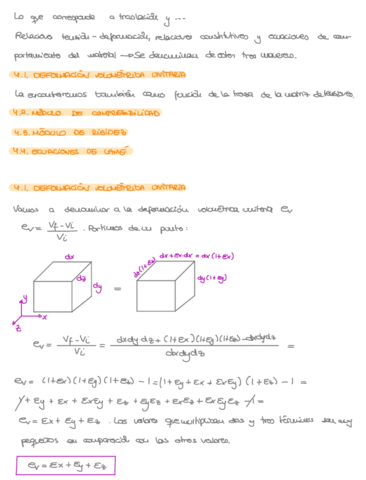 Lo que corresponde a traslación y ...
Relaciones tensión-deformación, relaciones constitutivas y ecuaciones de com-
portamiento del material → Se denominan de estas tres maneras.
4.1. DEFORMACIÓN VOLUMÉTRICA UNITARIA
La encontraremos también como función de la traza de la matriz de tensiones.
4.2. MÓDULO DE COMPRESIBILIDAD
4.3. MÓDULO DE RIGIDEZ
4.4. ECUACIONES DE LAMÉ
4.1. DEFORMACIÓN VOLUMÉTRICA UNITARIA
Vamos a denominar a la deformación volumétrica unitaria ev
ev = (Vf - Vi) / Vi . Partimos de un punto:
dx
dz
dy
y
x
z
=
dz(1+Ez)
dx + Ex·dx = dx(1+Ex)
dy(1+Ey)
ev = (Vf - Vi) / Vi = (dxdy·dz + (1+Ex)(1+Ey)(1+Ez) - dxdydz) / dxdydz =
ev = (1+Ex)(1+Ey)(1+Ez) - 1 = (1 + Ey + Ex + ExEy)(1+Ez) - 1 =
1 + Ey + Ex + ExEy + Ez + EyEz + ExEz + ExEyEz - 1 =
ev = Ex + Ey + Ez . Los valores que multiplican dos y tres términos son muy
pequeños en comparación con los otros valores.
ev = Ex + Ey + Ez